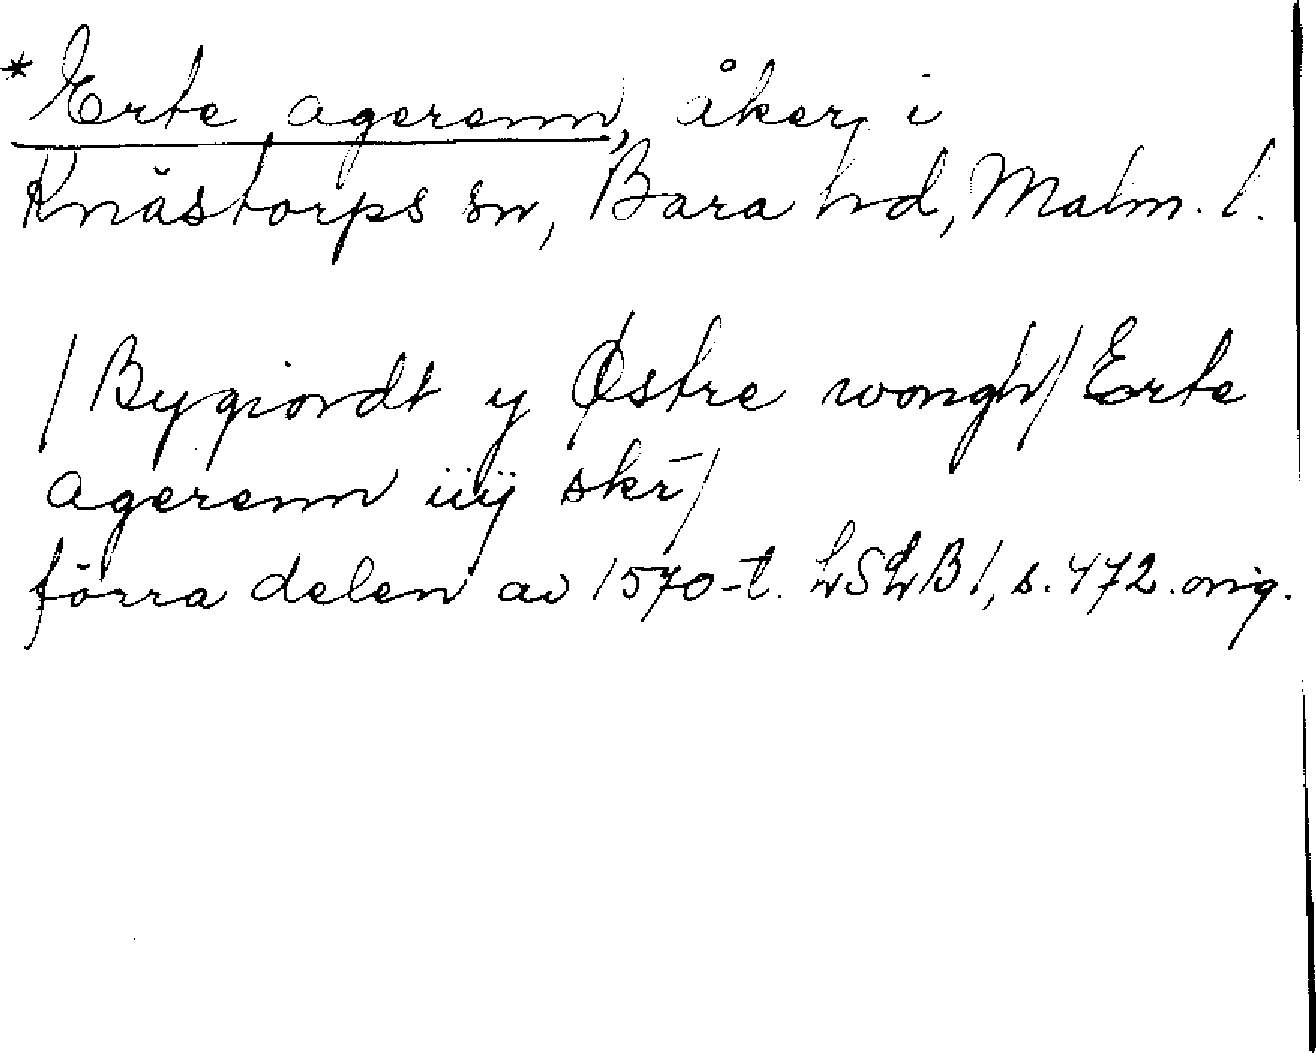 *Erte agerenn, åker i
Knästorps sn, Bara hd, Malm. l.
/Bygiordt y Østre wongh/Erte
agerenn iiij skr̄/
förra delen av 1570-t. LSLB 1, s. 472. orig.